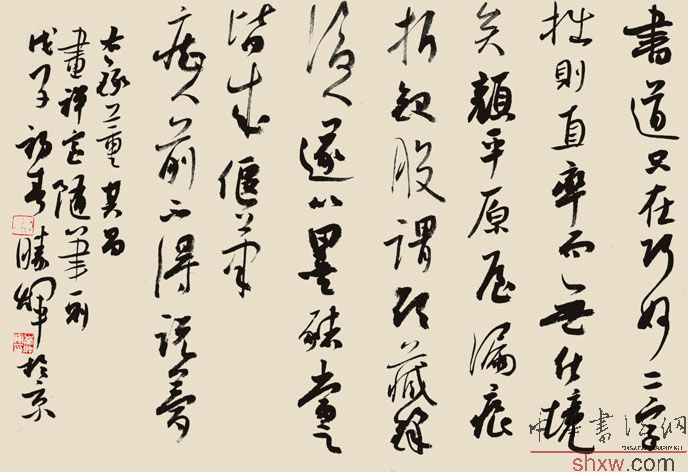 書道只在巧妙二字
拙則直率而無化境
矣顏平原屋漏痕
折釵股謂欲藏鋒
後人遂以墨豬當之
皆成偃筆
癡人前不得說夢
右録董其昌
畫禪室隨筆一則
戊子初春勝輝於京
中華書法網
shxw.com